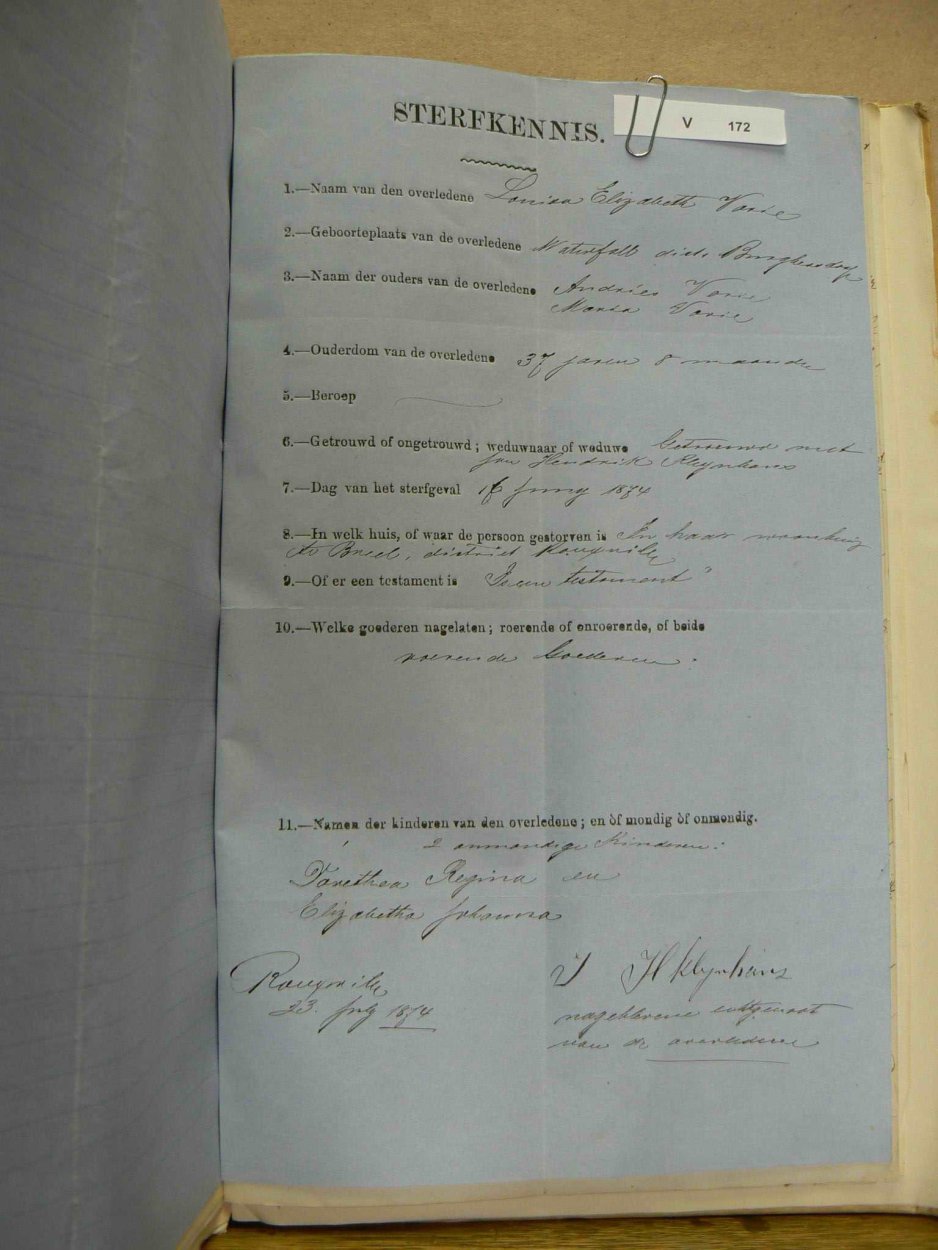 V 172
STERFKENNIS.
1.—Naam van den overledene Louisa Elizabeth Vorie
2.—Geboorteplaats van de overledene Waterfall dist. Burghersdorp
3.—Naam der ouders van de overledene Andries Vorie
Maria Vorie
4.—Ouderdom van de overledene 37 jaren 8 maanden
5.—Beroep
6.—Getrouwd of ongetrouwd; weduwnaar of weduwe Getrouwd met
Jan Hendrik Kleynhans
7.—Dag van het sterfgeval 16 Juny 1874
8.—In welk huis, of waar de persoon gestorven is In haar woonhuis
district Rouxville
9.—Of er een testament is Geen testament
10.—Welke goederen nagelaten; roerende of onroerende, of beide
roerende Goederen
11.—Namen der kinderen van den overledene; en òf mondig òf onmondig.
2 onmondige Kinderen:
Dorethea Regina en
Elizabetha Johanna
Rouxville J H Kleynhans
23 July 1874 nageblevene echtgenoot
van de overledene